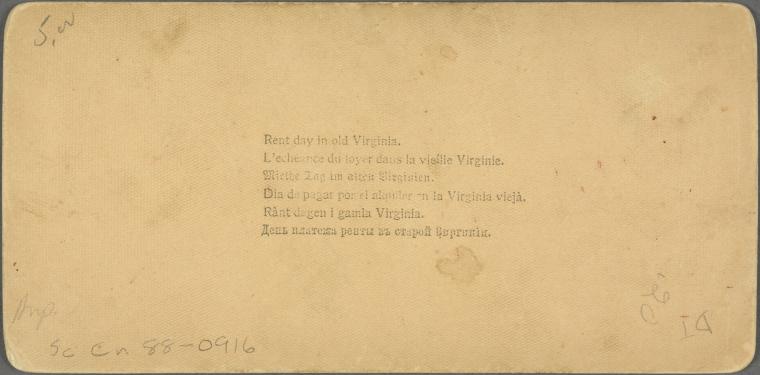 5.00
Rent day in old Virginia.
L'echeance du loyer dans la vieille Virginie.
Miethe Tag im alten Virginien.
Dia de pagar por el alquiler en la Virginia viejà.
Rånt dagen i gamla Virginia.
День платежа ренты въ старой Виргинiи.
Sc Cn 88-0916